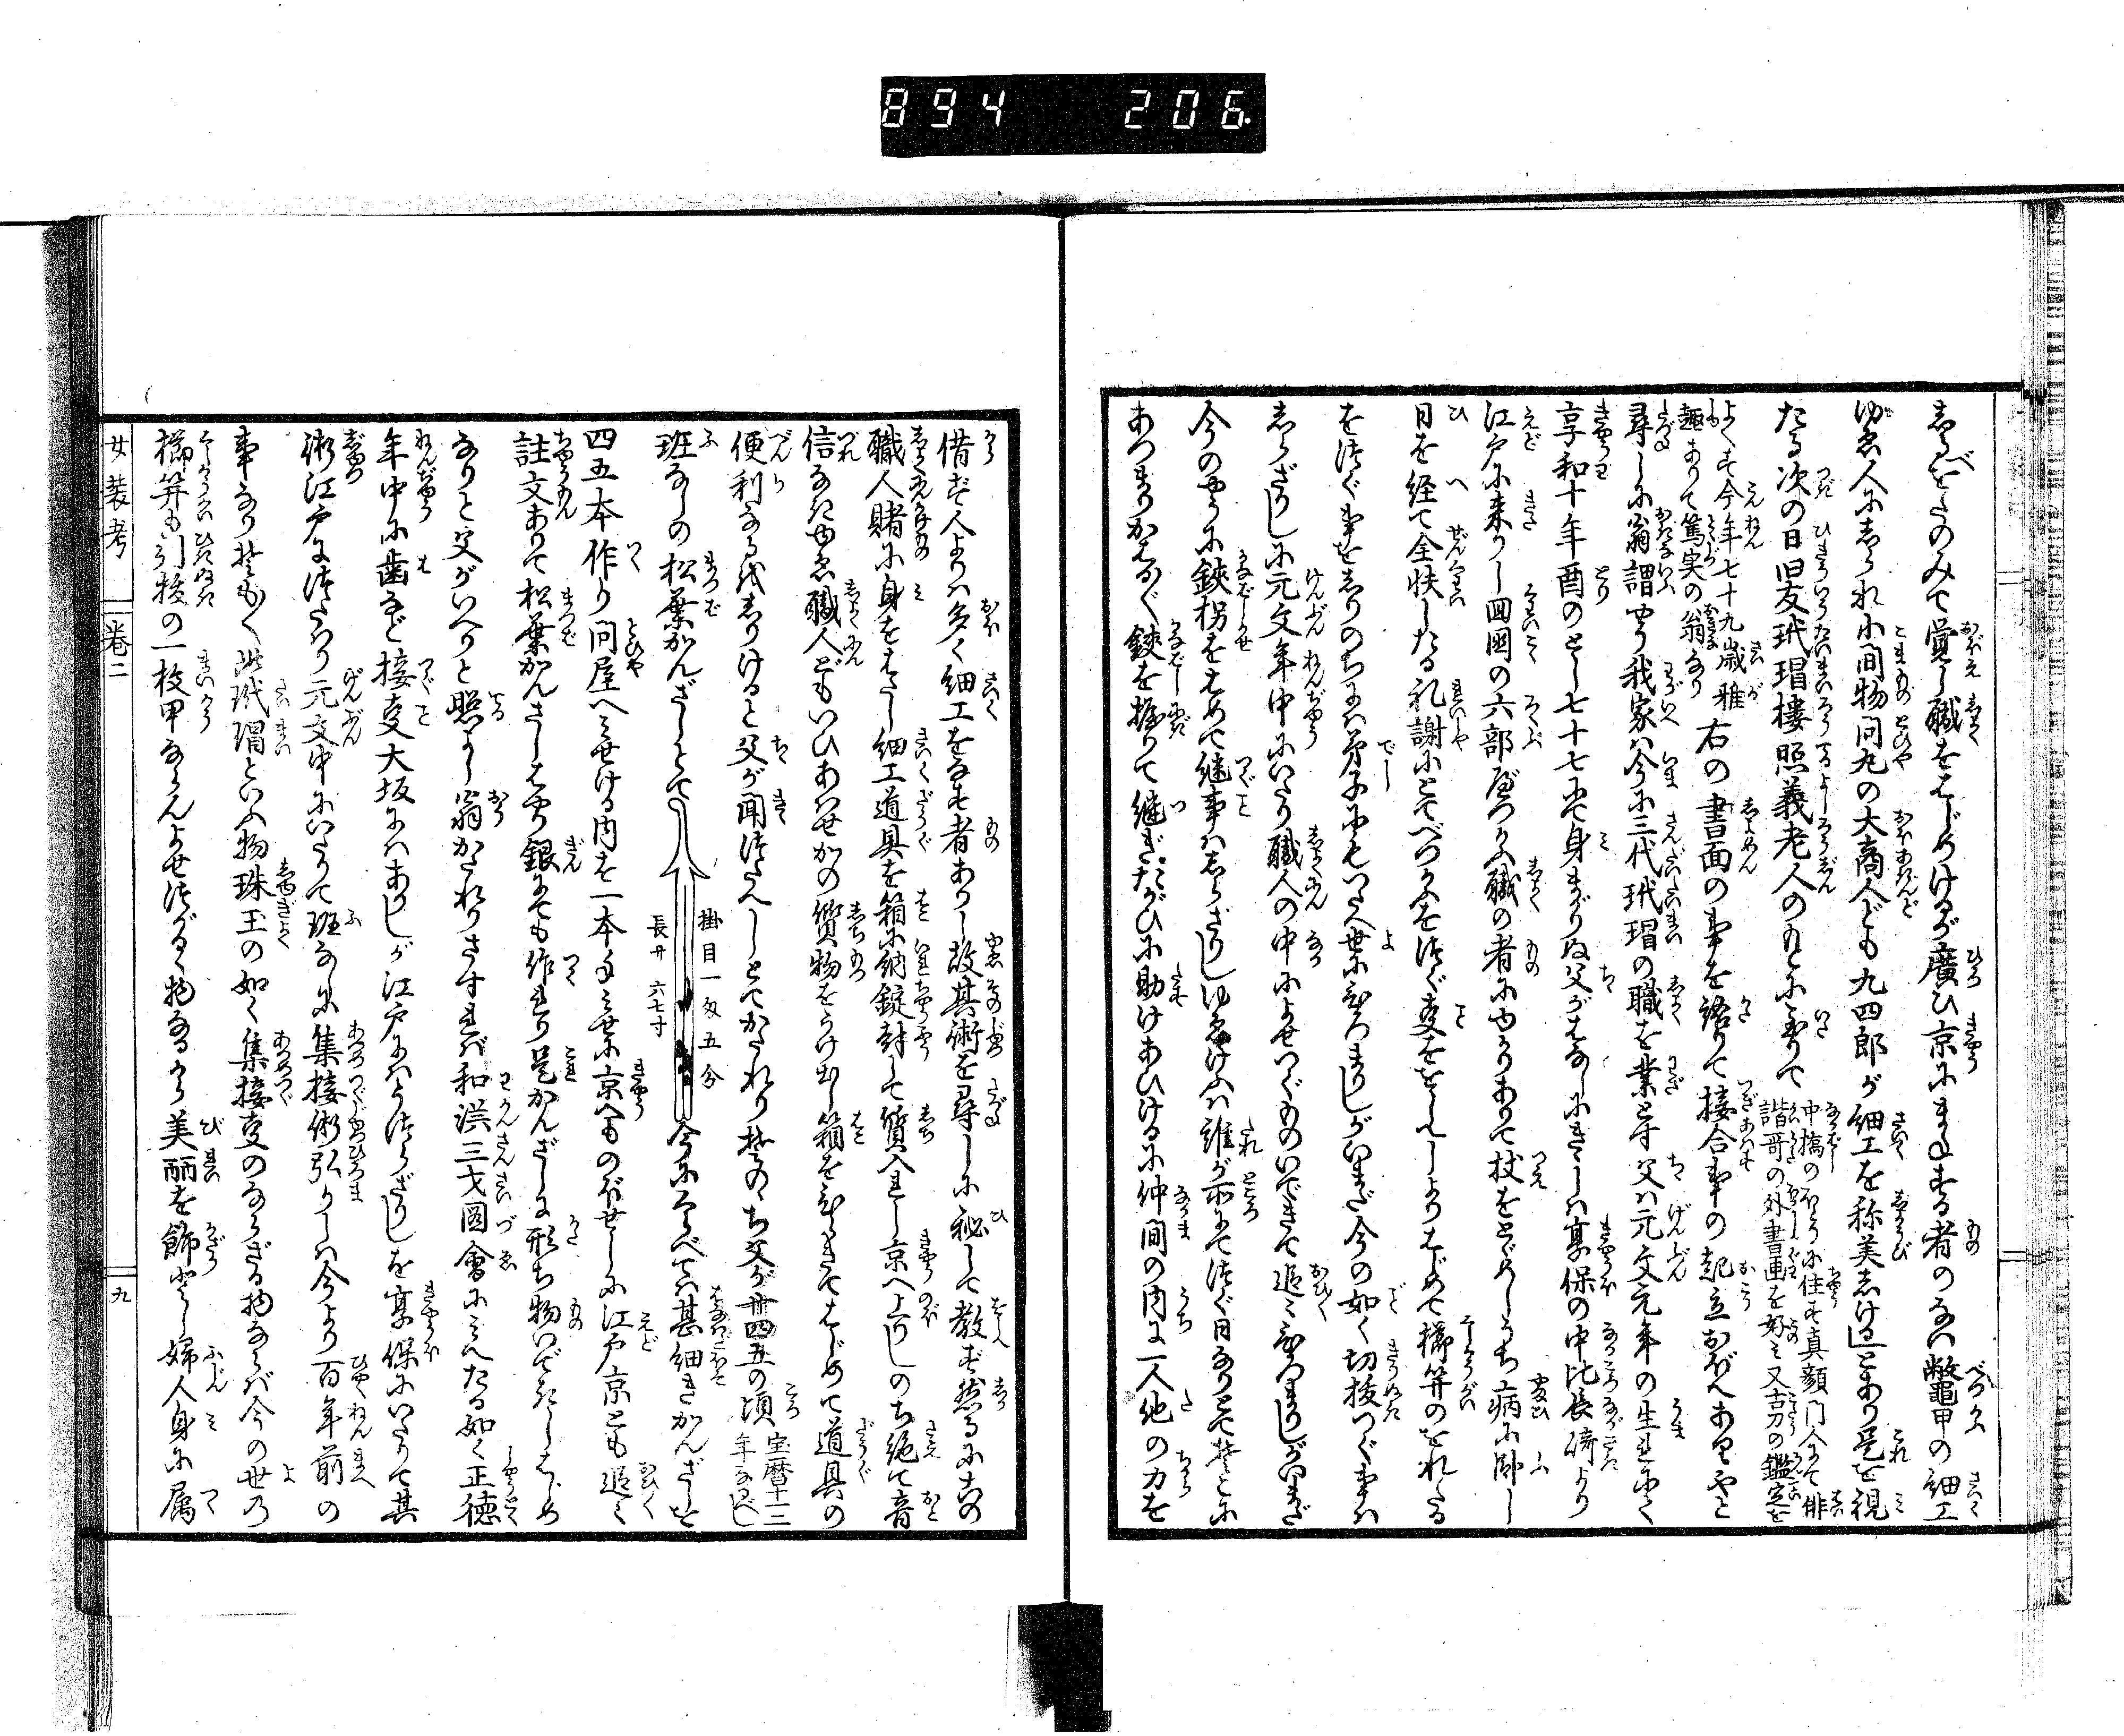 894 206.
しるべをたのみて覚し職をはじめけるが廣ひ京にまたする者のない鼈甲の細工
ゆゑ人にしられ小間物問丸の大商人ども九四郎が細工を称美しけるとあり是を視
たる次の日旧友玳瑁樓照義老人のもとに到りて
中橋の に住す真顔門人にて俳
諧哥の外書画を好み又古刀の鑑定を
よくす今年七十九歳雅
趣ありて篤実の翁なり
右の書面の事を語りて接合事の起立おぼえありやと
尋しに翁謂やう我家は今に三代玳瑁の職を業とす父は元文元年の生れにて
享和十年酉のとし七十七にて身まかりぬ父がはなしにきゝしは享保の中比長崎より
江戸に来りし回国の六部屋つかふ職の者にゆかりありて杖をとゞめしうち病に臥し
日を経て全快したる礼謝にとてべつかふを継ぐ事ををしへしよりはじめて櫛笄のをれたる
を継ぐ事をしりのちには弟子にもいたへ世にひろまりしがいまだ今の如く切抜つぐ事は
しらざりしに元文年中にいたり職人の中によせつぐものいできて追々ひろまりしがいまだ
今のやうに鋏枴をはめて継事はしらざりしゆゑけふは誰が所にて継ぐ日なりとて其もとに
あつまりかはる〴〵鋏を握りて継ぎたがひに助けあひけるに仲間の内に一人他の力を
借ず人よりは多く細工をなす者ありし故其術を尋しに秘して教ず然るにその
職人賭に身をはたし細工道具を箱に納錠封して質入れし京へ上りしのち絶て音
信なきゆゑ職人どもいひあはせかの質物をうけ出し箱をひらきてはじめて道具の
便利なるをしりけると父が聞つたへしとてかたれり其のち父が廿四五の頃
宝暦十二
年なるべし
斑なしの松葉かんざしとて
掛目一匁五分
長サ六七寸
今にくらべては甚細きかんざしを
四五本作り問屋へみせける内を一本手みせに京へものぼせしに江戸京とも追々
註文ありて松葉かんざしはやり銀にても作れり是かんざしに形ち物いできしはじめ
なりと父がいへりと照よし翁かたれりさすれば和漢三才圖會にみえたる如く正徳
年中に歯など接事大坂にはありしが江戸にはうつらざりしを享保にいたりて其
術江戸につたはり元文中にいたりて斑なしに集接術弘りしは今より百年前の
事なりそも〳〵此玳瑁といふ物珠玉の如く集接事のならざる物ならば今の世の
櫛笄も引抜の一枚甲ならんよせつがるゝ物なるから美麗を飾とし婦人身に属
女装考 卷二 九